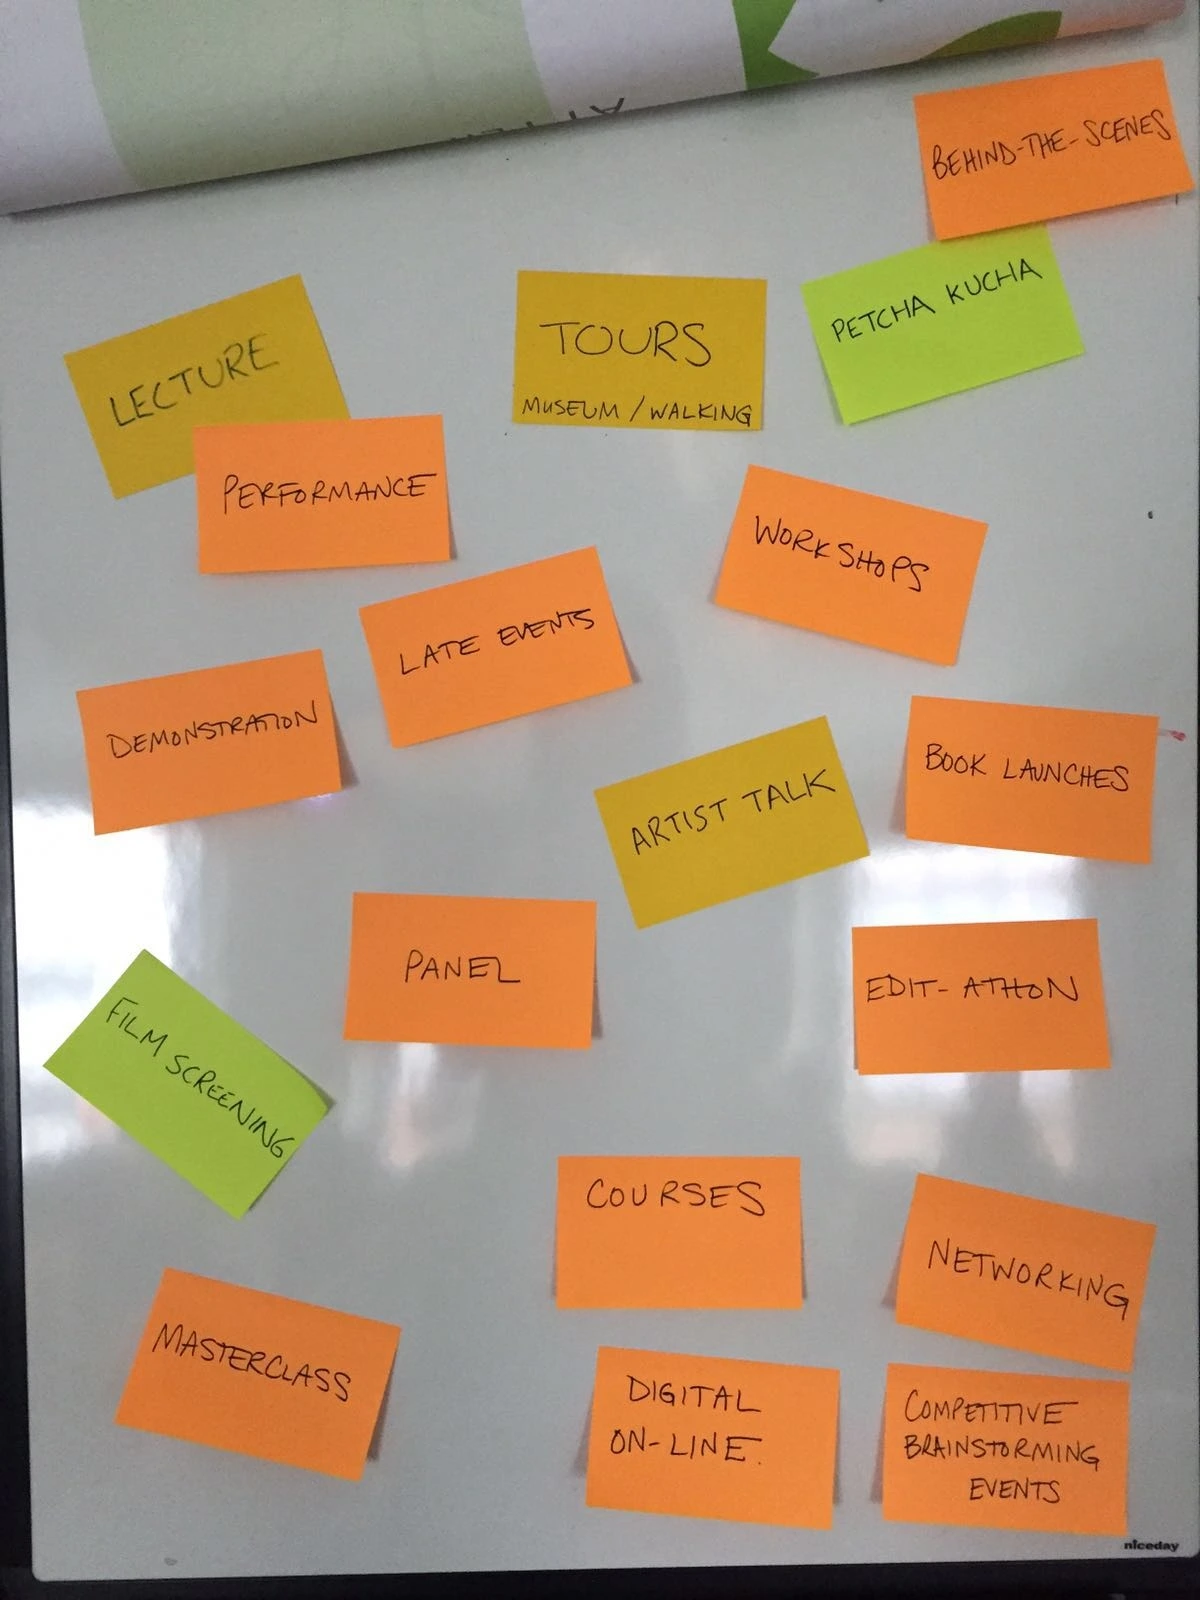 BEHIND-THE-SCENES
PETCHA KUCHA
LECTURE
TOURS
MUSEUM / WALKING
PERFORMANCE
WORKSHOPS
LATE EVENTS
DEMONSTRATION
BOOK LAUNCHES
ARTIST TALK
PANEL
EDIT-ATHON
FILM SCREENING
COURSES
NETWORKING
MASTERCLASS
DIGITAL
ON-LINE.
COMPETITIVE
BRAINSTORMING
EVENTS
niceday